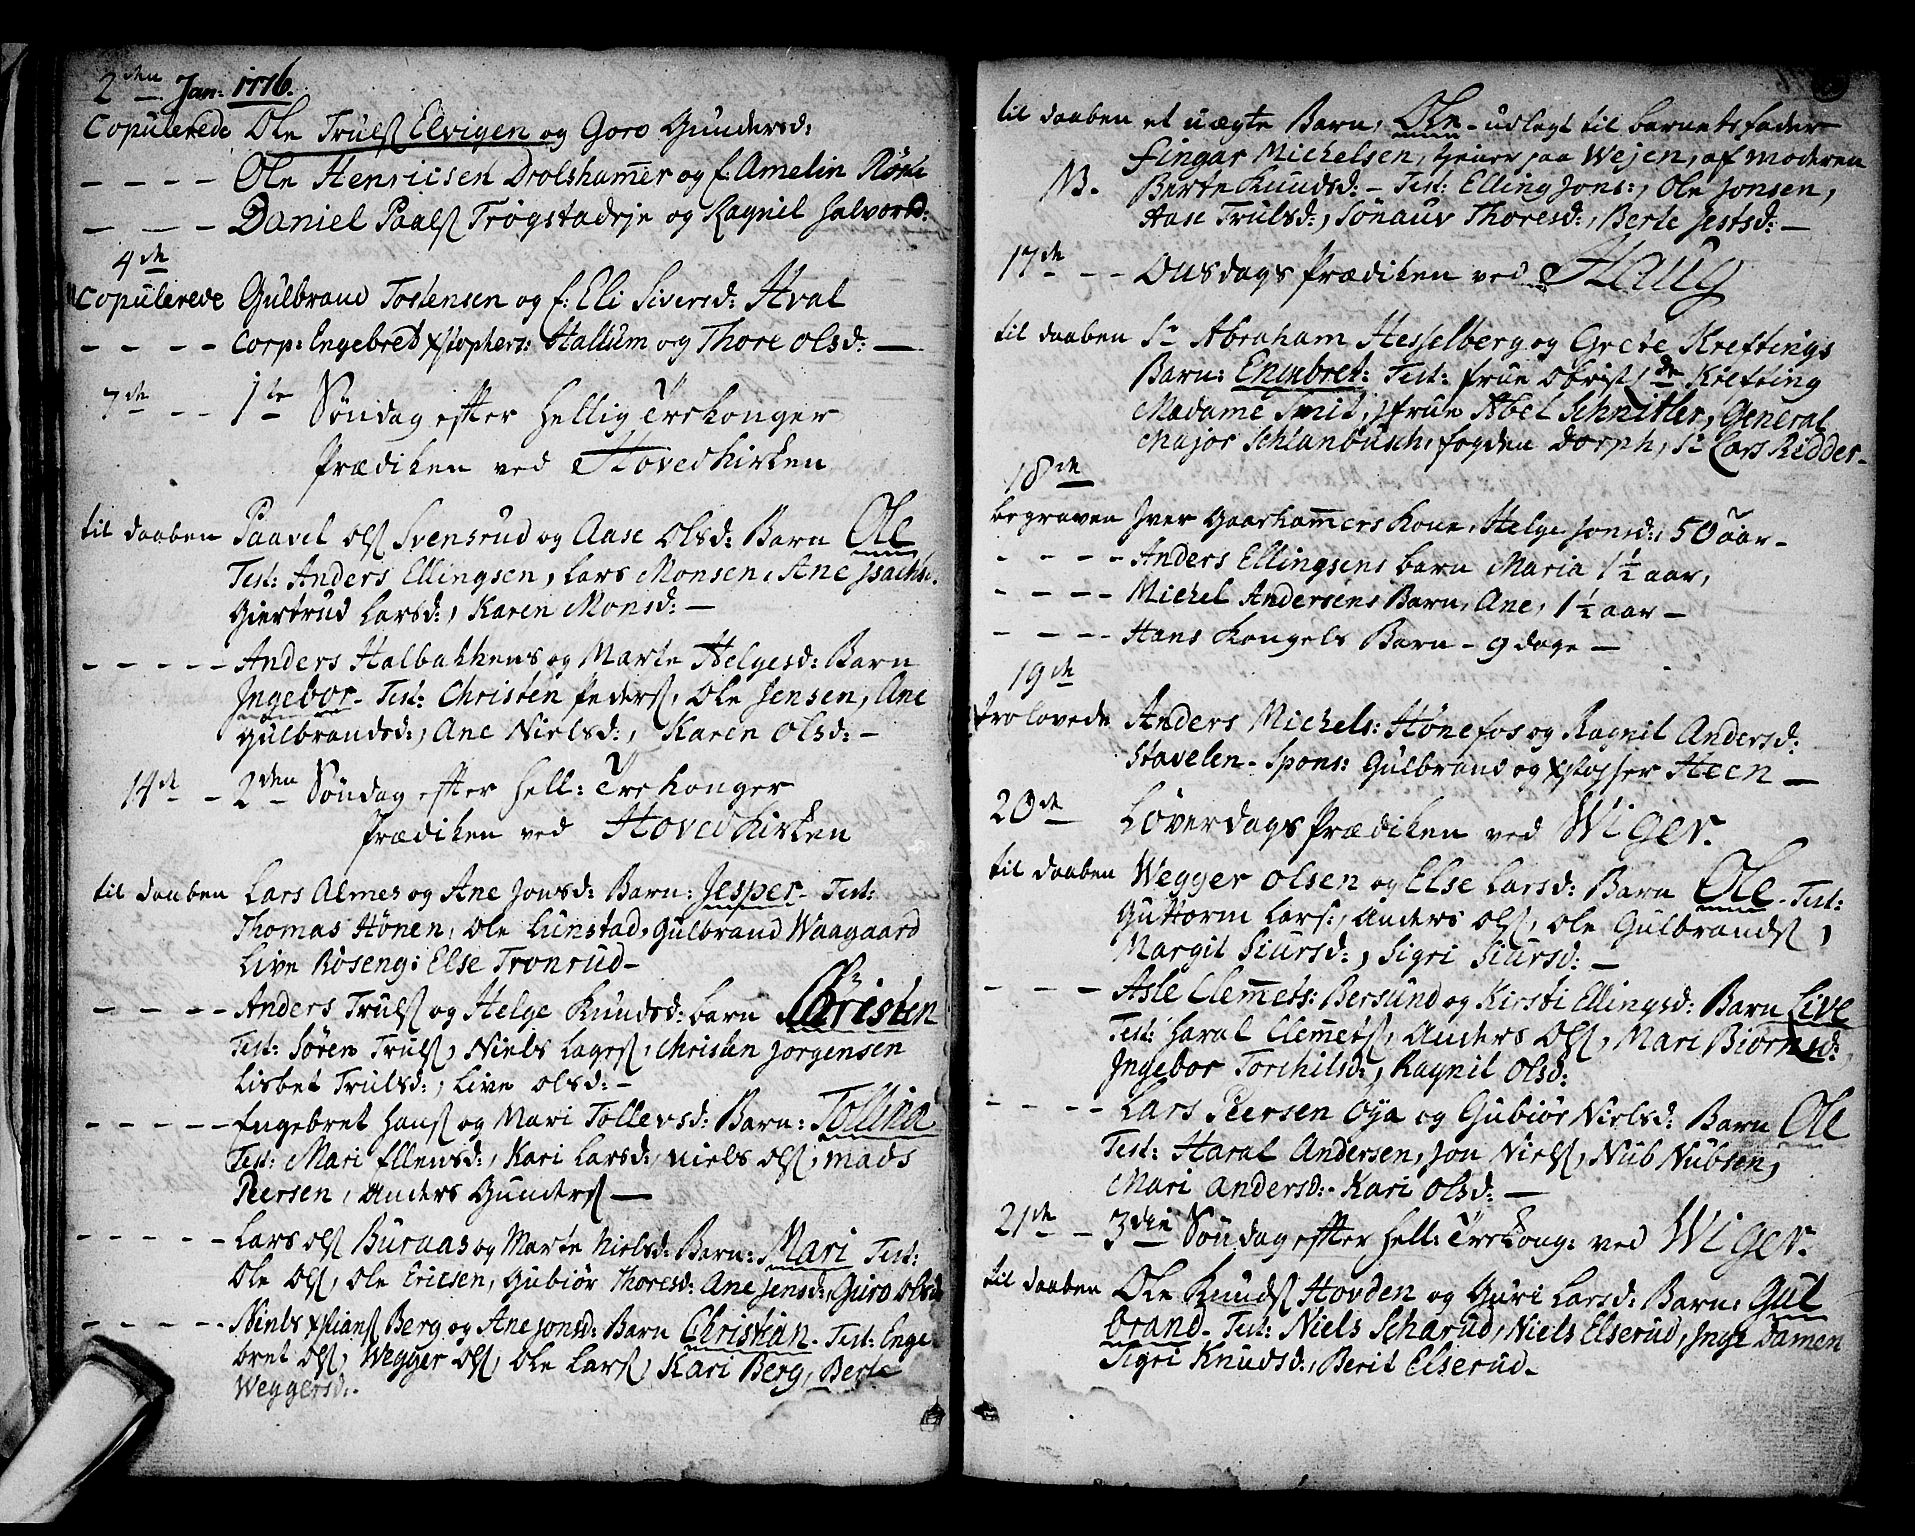 2den Jan: 1776.
Copulerede Ole Truls Elvigen og Goro Gundersd:
- - - - Ole Henricsen Drolshamer og f. Amelin
- - - Daniel Paals og Ragnil Halvorsd:
4de
Copulerede Gulbrand Tostensen og f: Eli Siversd: Hval
- - - - Corp: Engebred xstophers: Hallum og Thore Olsd: -
7de - - 1te Søndag efter Hellig Trekonger
Prædiken ved Hovedkirken
til daaben Paavel Ols Svensrud og Aase Olsd: Barn Ole
Test: Anders Ellingsen, Lars Monsen, Ane Isachs:
Giertrud Larsd:, Karen Monsd: -
- - - - - Anders Halbakkens og Marte Helgesd: Barn
Ingebor - Test: Christen Peders, Ole Jensen, Ane
Gulbrandsd:, Ane Nielsd:, Karen Olsd: -
14de - 2den Søndag efter Hell: Trekonger
Prædiken ved Hovedkirken
til daaben Lars Almes og Ane Jonsd: Barn: Jesper - Test:
Thomas Hønen, Ole Lunstad, Gulbrand Waagaard
Live Røseng: Else Tronrud -
- - - - - Anders Truls og Helge Knudsd: barn Christen
Test: Søren Truls, Niels Lages, Christen Jorgensen
Lisbet Trulsd:, Live Olsd: -
- - - - - Engebret Hans og Mari Tollevsd: Barn: Tollina
Test: Mari Ellensd:, Kari Larsd:, Niels Ols, Mads
Peersen, Anders Gunders -
- - - - - Lars Ols Buraas og Marte Nielsd: Barn: Mari Test:
Ole Ols, Ole Ericsen, Gubiør Thoresd: Ane Jensd:, Guro Olsd
- - - - - Niels xstians Berg og Ane Jonsd: Barn Christian - Test: Enge
bret Ols, Wegger Ols, Ole Lars, Kari Berg, Berte
Weggersd: -
til daaben et uægte Barn, Ole - udlagt til barnets fader
Fingar Michelsen, paa Wejen, af moderen
NB. Berte Knudsd: - Test: Elling Jons:, Ole Jonsen,
Aase Trulsd:, Sønauv Thoresd:, Berte Jestsd: -
17de - - Onsdags Prædiken ved Haug
til daaben Sr Abraham Hesselberg og Grete Kreftings
Barn: Engebret: Test: frue Obrist Krefting
Madame Smit, Jfrue Abel Schnitler, General
Major Schlanbusch, fogden Dorph, Sr Lars Ridder -
18de
begraven Iver Gaarhamers Kone, Helge Jonsd:, 50 aar -
- - - - Anders Ellingsens barn Maria 1 1/2 aar,
- - - - Michel Andersens Barn, Ane, 1 1/2 aar -
- - - - Hans Kongels Barn - 9 dage -
19de
trolovede Anders Michels: Hønefos og Ragnil Andersd:
Stavelen - Spons: Gulbrand og xstopher Heen -
20de Løverdags Prædiken ved Wiger.
til daaben Wegger Olsen og Else Larsd: Barn Ole - Test:
Guttorm Lars:, Anders Ols, Ole Gulbrands,
Margit Siursd:, Sigri Siursd: -
- - - - Asle Clemets: Bersund og Kirsti Ellingsd: Barn Live
Test: Haral Clemets, Anders Ols, Mari Biørnsd:,
Ingebor Torchilsd:, Ragnil Olsd:
- - - - Lars Peersen Oya og Gubiør Nielsd: Barn Ole
Test: Haral Andersen, Jon Niels, Nub Nubsen,
Mari Andersd: - Kari Olsd: -
21de - 3die Søndag efter Hell: Trekong: ved Wiger.
til daaben Ole Knuds Hovden og Guri Larsd: Barn: Gul
brand - Test: Niels Scharud, Niels Elserud, Inge Damen
Sigri Knudsd:, Berit Elserud -